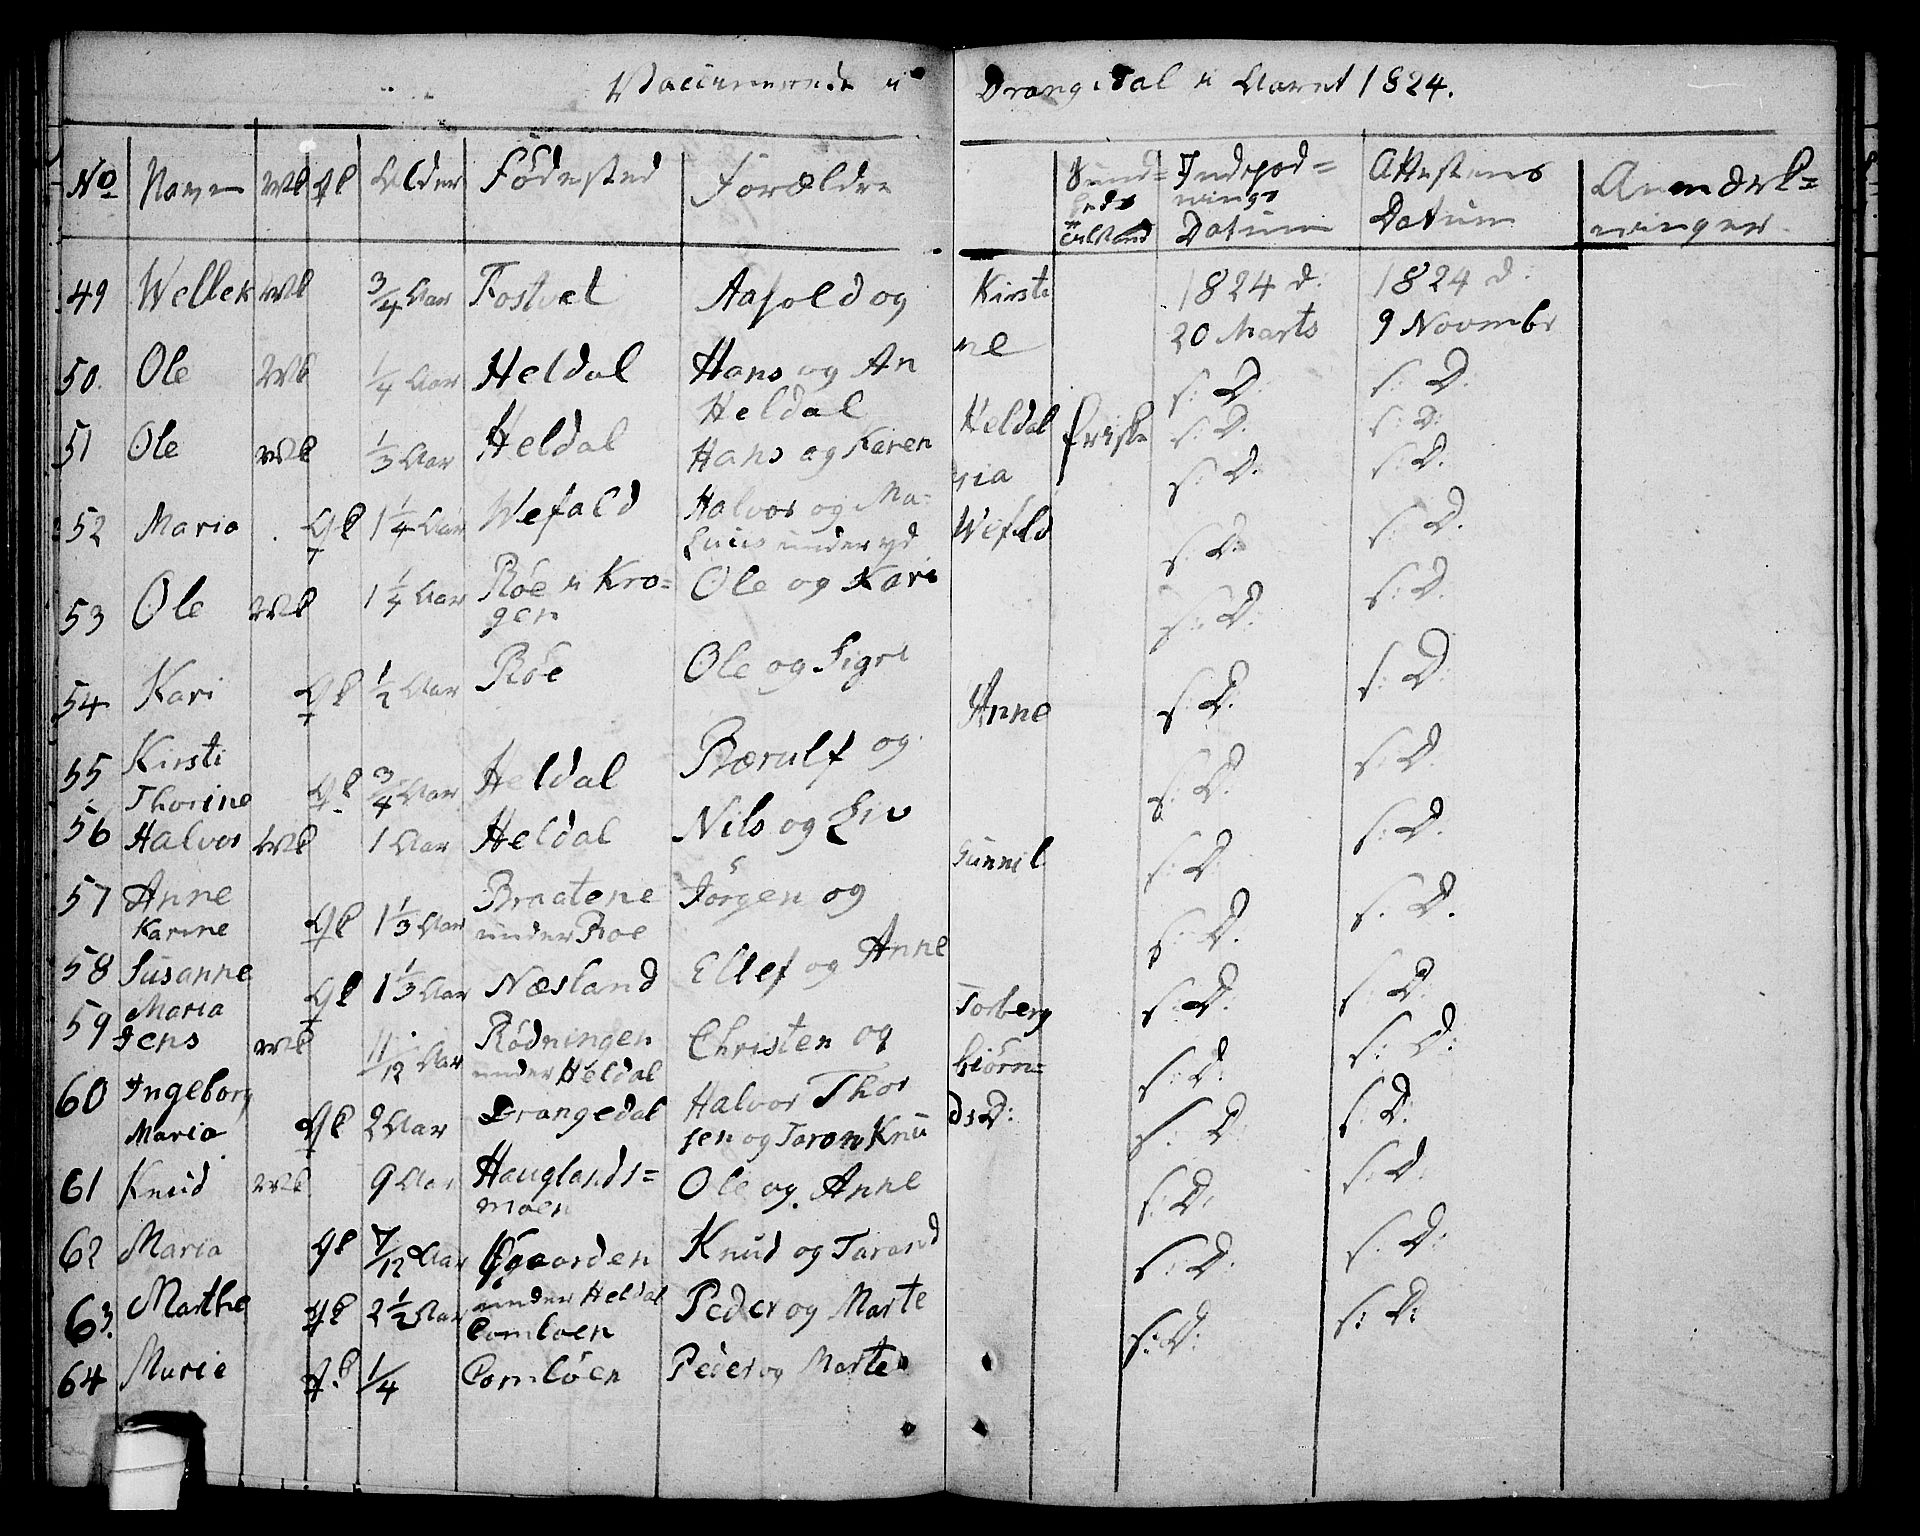 Vaccinerede i Drangedal i Aaret 1824.
No Navn Mk Qk Alder Fødested Forældre Sund= Indpod= Attestens Anmærk=
heds nings Datum ninger
tilstand Datum
49 Wellek Mk 3/4 Aar Fostvet Aasold og Kirsti 1824 d: 1824 d:
ne 20 Marts 9 Novembr
50. Ole Mk 1/4 Aar Heldal Hans og An s: D: s: D:
Heldal Heldal friske s: D: s: D:
51 Ole Mk 1/3 Aar Heldal Hans og Karen s: D: s: D.
52 Maria Qk 1 1/4 Aar Wefald Halvor og Ma= ria s: D: s: D.
under Wefald
53 Ole Mk 1 1/4 Aar Røe i Kro= Ole og Kari s: D: s: D.
gen
54 Kari Qk 1/2 Aar Røe Ole og Sigri s: D. s: D:
55 Kirsti Qk 3/4 Aar Heldal Bærulf og Anne s: D. s: D.
Thorine
56 Halvor Mk 1 Aar Heldal Nils og Liv s: D. s: D.
57 Anne Qk 1 1/3 Aar Braatene Jørgen og Gunnil s: D. s: D.
Karine under Roe
58 Susanne Qk 1 1/3 Aar Næsland Ellef og Anne s: D: s: D:
Maria
59 Jens Mk 11/12 Aar Rødningen Christen og Torberg s: D. s: D:
under Heldal Biørn=
60 Ingeborg Qk 2 Aar Drangedal Halvor Thor s: D. s: D.
Maria sen og Taron Knu dsD:
61 Knud Mk 9 Aar Hauglands= Ole og Anne s: D. s: D.
moen
62 Maria Qk 7/12 Aar Øgaarden Knud og Tarand s: D. s: D:
under Heldal
63. Marthe Qk 2 1/2 Aar Comloen Peder og Marte s: D: s: D:
64 Marie Qk 1/4 Comløen Peder og Marte